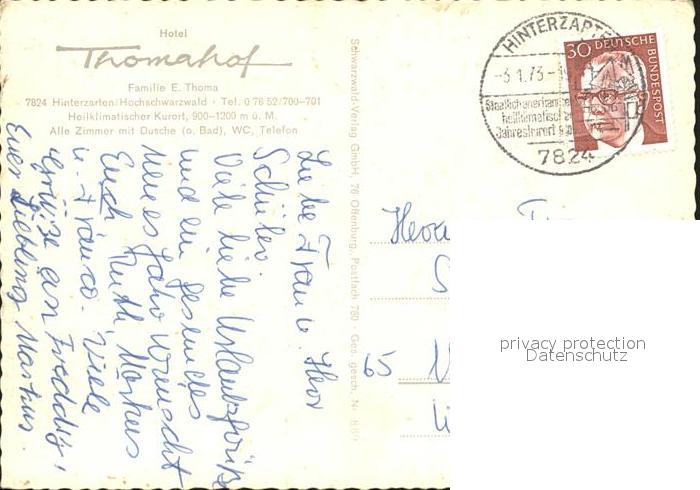 Hotel
Thomahof
Familie E. Thoma
7824 Hinterzarten/Hochschwarzwald · Tel. 0 76 52/700-701
Heilklimatischer Kurort, 900-1200 m ü. M.
Alle Zimmer mit Dusche (o. Bad), WC, Telefon
Liebe Frau u. Herr
Schüler
Viele liebe Urlaubsgrüße
und ein gesundes
neues Jahr wünscht
Euch Ruth, Markus
u. Franco. Viele
Grüße an Freddy!
Euer Liebling Markus.
Schwarzwald-Verlag GmbH, 76 Offenburg, Postfach 780 · Ges. gesch. Nr.
HINTERZARTEN
-3.1.73-
Staatlich anerkannter
heilklimatischer
Jahreskurort
7824
30 DEUTSCHE
BUNDESPOST
65
privacy protection
Datenschutz